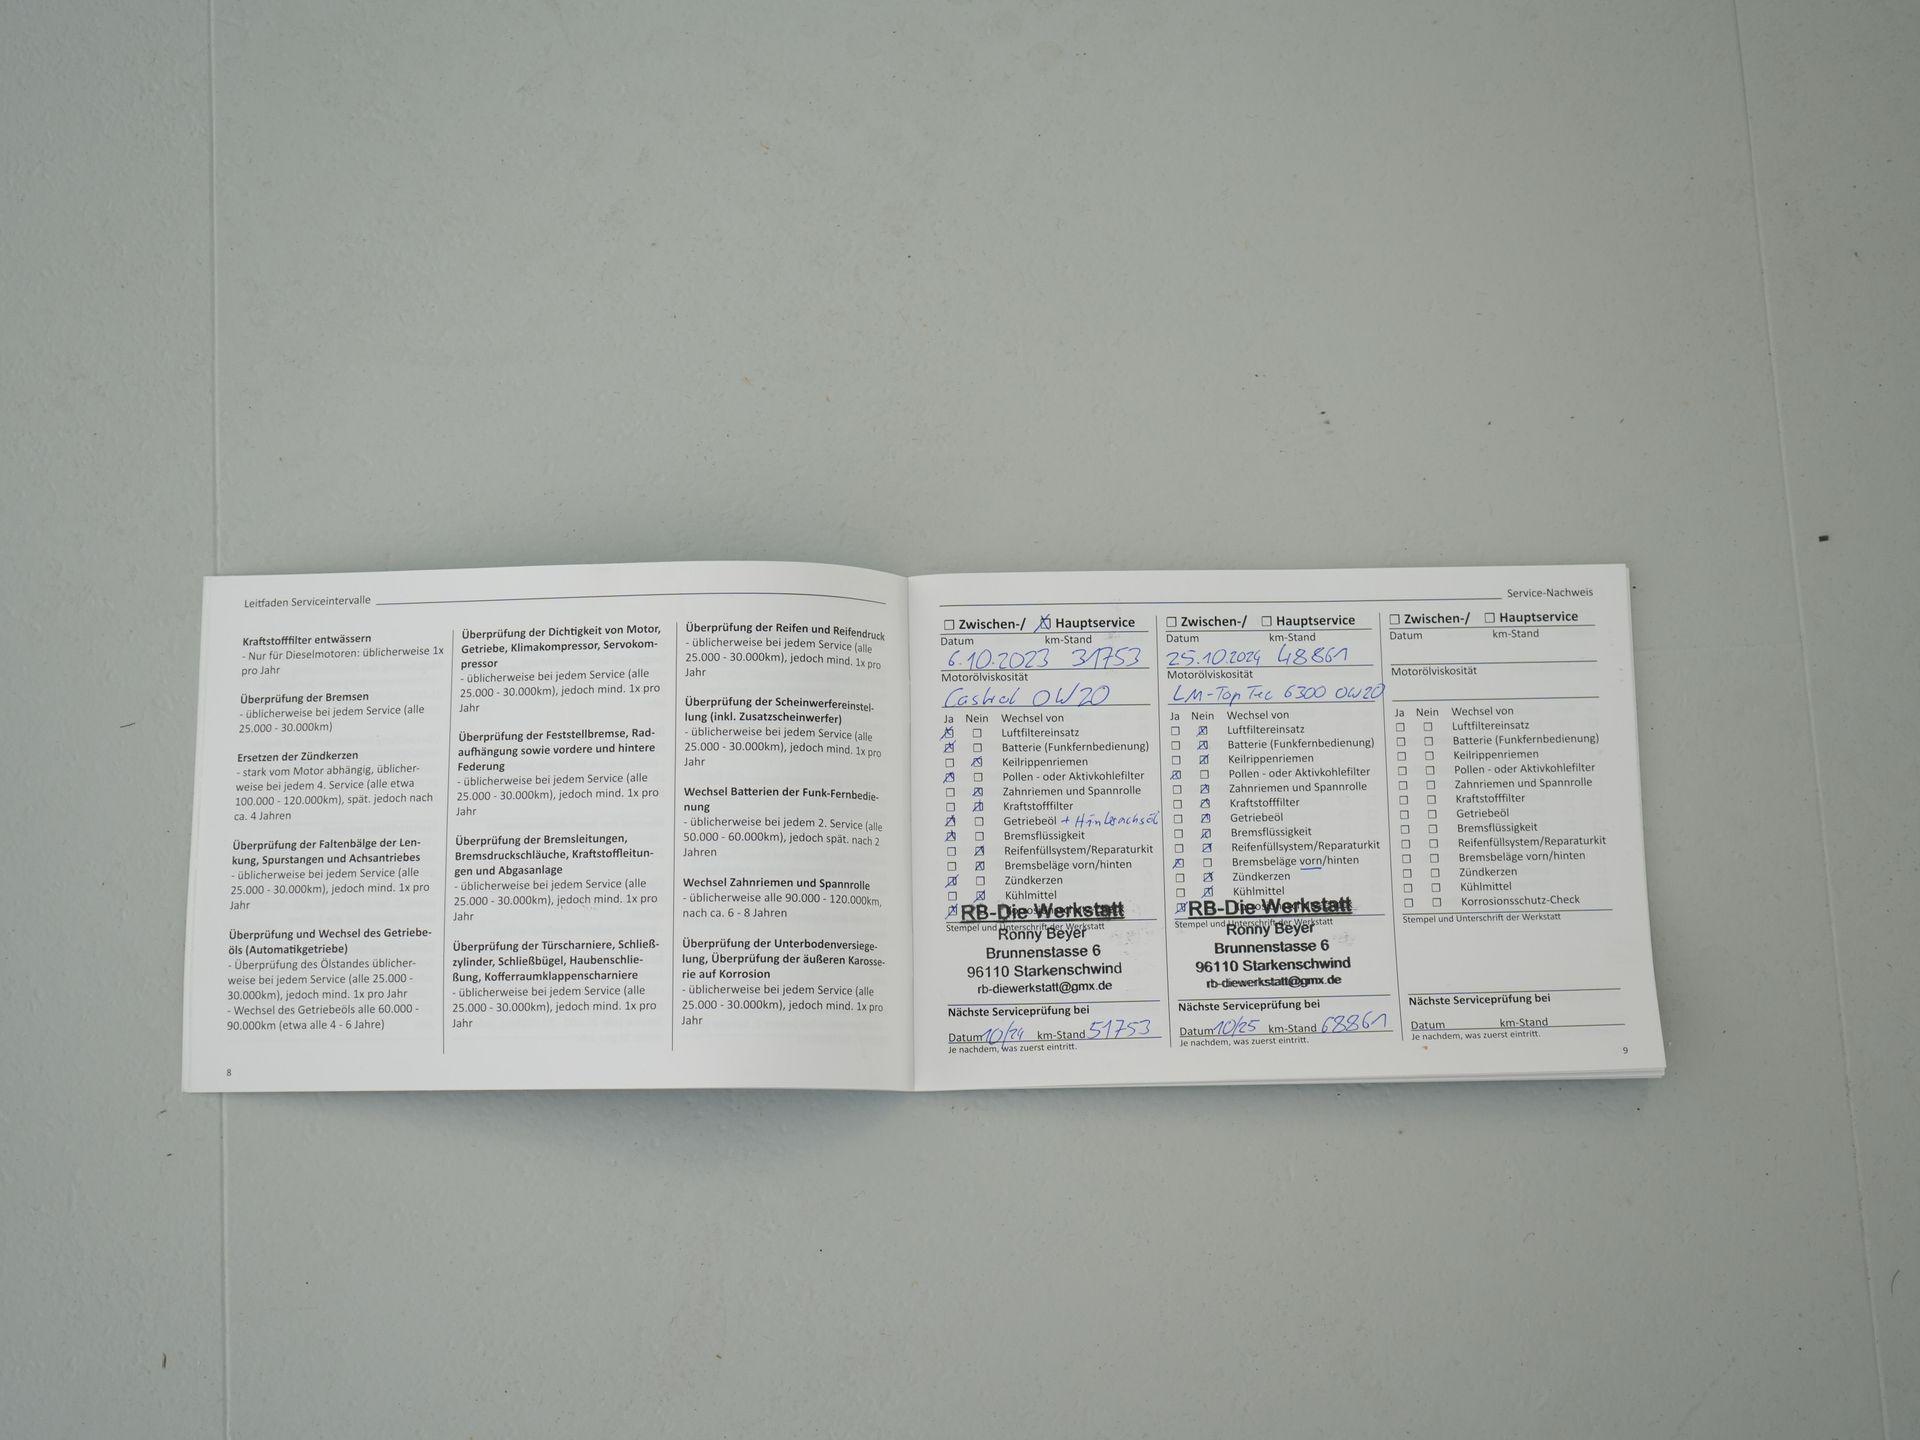 Leitfaden Serviceintervalle
Kraftstofffilter entwässern
- Nur für Dieselmotoren: üblicherweise 1x
pro Jahr
Überprüfung der Bremsen
- üblicherweise bei jedem Service (alle
25.000 - 30.000km)
Ersetzen der Zündkerzen
- stark vom Motor abhängig, üblicher-
weise bei jedem 4. Service (alle etwa
100.000 - 120.000km), spät. jedoch nach
ca. 4 Jahren
Überprüfung der Faltenbälge der Len-
kung, Spurstangen und Achsantriebes
- üblicherweise bei jedem Service (alle
25.000 - 30.000km), jedoch mind. 1x pro
Jahr
Überprüfung und Wechsel des Getriebe-
öls (Automatikgetriebe)
- Überprüfung des Ölstandes üblicher-
weise bei jedem Service (alle 25.000 -
30.000km), jedoch mind. 1x pro Jahr
- Wechsel des Getriebeöls alle 60.000 -
90.000km (etwa alle 4 - 6 Jahre)
8
Überprüfung der Dichtigkeit von Motor,
Getriebe, Klimakompressor, Servokom-
pressor
- üblicherweise bei jedem Service (alle
25.000 - 30.000km), jedoch mind. 1x pro
Jahr
Überprüfung der Feststellbremse, Rad-
aufhängung sowie vordere und hintere
Federung
- üblicherweise bei jedem Service (alle
25.000 - 30.000km), jedoch mind. 1x pro
Jahr
Überprüfung der Bremsleitungen,
Bremsdruckschläuche, Kraftstoffleitun-
gen und Abgasanlage
- üblicherweise bei jedem Service (alle
25.000 - 30.000km), jedoch mind. 1x pro
Jahr
Überprüfung der Türscharniere, Schließ-
zylinder, Schließbügel, Haubenschlie-
ßung, Kofferraumklappenscharniere
- üblicherweise bei jedem Service (alle
25.000 - 30.000km), jedoch mind. 1x pro
Jahr
Überprüfung der Reifen und Reifendruck
- üblicherweise bei jedem Service (alle
25.000 - 30.000km), jedoch mind. 1x pro
Jahr
Überprüfung der Scheinwerfereinstel-
lung (inkl. Zusatzscheinwerfer)
- üblicherweise bei jedem Service (alle
25.000 - 30.000km), jedoch mind. 1x pro
Jahr
Wechsel Batterien der Funk-Fernbedie-
nung
- üblicherweise bei jedem 2. Service (alle
50.000 - 60.000km), jedoch spät. nach 2
Jahren
Wechsel Zahnriemen und Spannrolle
- üblicherweise alle 90.000 - 120.000km,
nach ca. 6 - 8 Jahren
Überprüfung der Unterbodenversiege-
lung, Überprüfung der äußeren Karosse-
rie auf Korrosion
- üblicherweise bei jedem Service (alle
25.000 - 30.000km), jedoch mind. 1x pro
Jahr
Service-Nachweis
Zwischen-/ Hauptservice
Datum km-Stand
6.10.2023 31753
Motorölviskosität
Castrol 0W20
Ja Nein Wechsel von
Luftfiltereinsatz
Batterie (Funkfernbedienung)
Keilrippenriemen
Pollen - oder Aktivkohlefilter
Zahnriemen und Spannrolle
Kraftstofffilter
Getriebeöl + Hinterachsöl
Bremsflüssigkeit
Reifenfüllsystem/Reparaturkit
Bremsbeläge vorn/hinten
Zündkerzen
Kühlmittel
RB-Die Werkstatt
Stempel und Unterschrift der Werkstatt
Ronny Beyer
Brunnenstasse 6
96110 Starkenschwind
rb-diewerkstatt@gmx.de
Nächste Serviceprüfung bei
Datum 10/24 km-Stand 51753
Je nachdem, was zuerst eintritt.
Zwischen-/ Hauptservice
Datum km-Stand
25.10.2024 48861
Motorölviskosität
LM-Top Tec 6300 0W20
Ja Nein Wechsel von
Luftfiltereinsatz
Batterie (Funkfernbedienung)
Keilrippenriemen
Pollen - oder Aktivkohlefilter
Zahnriemen und Spannrolle
Kraftstofffilter
Getriebeöl
Bremsflüssigkeit
Reifenfüllsystem/Reparaturkit
Bremsbeläge vorn/hinten
Zündkerzen
Kühlmittel
RB-Die Werkstatt
Stempel und Unterschrift der Werkstatt
Ronny Beyer
Brunnenstasse 6
96110 Starkenschwind
rb-diewerkstatt@gmx.de
Nächste Serviceprüfung bei
Datum 10/25 km-Stand 68861
Je nachdem, was zuerst eintritt.
Zwischen-/ Hauptservice
Datum km-Stand
Motorölviskosität
Ja Nein Wechsel von
Luftfiltereinsatz
Batterie (Funkfernbedienung)
Keilrippenriemen
Pollen - oder Aktivkohlefilter
Zahnriemen und Spannrolle
Kraftstofffilter
Getriebeöl
Bremsflüssigkeit
Reifenfüllsystem/Reparaturkit
Bremsbeläge vorn/hinten
Zündkerzen
Kühlmittel
Korrosionsschutz-Check
Stempel und Unterschrift der Werkstatt
Nächste Serviceprüfung bei
Datum km-Stand
Je nachdem, was zuerst eintritt.
9